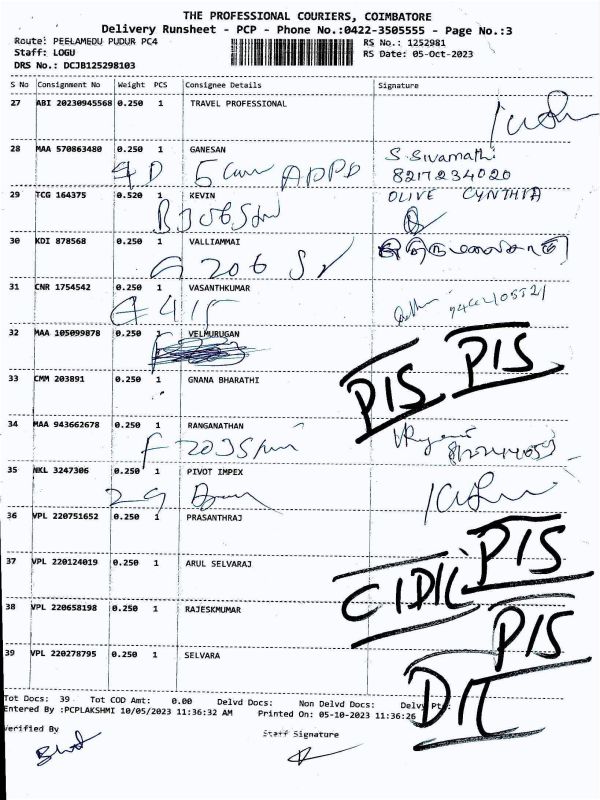 THE PROFESSIONAL COURIERS, COIMBATORE
Delivery Runsheet - PCP - Phone No.:0422-3505555 - Page No.:3
Route: PEELAMEDU PUDUR PC4
RS No.: 1252981
Staff: LOGU
RS Date: 05-Oct-2023
DRS No.: DCJB125298103
S No Consignment No Weight PCS Consignee Details Signature
27 ABI 20230945568 0.250 1 TRAVEL PROFESSIONAL
28 MAA 570863480 0.250 1 GANESAN S. Sivamathi
8217234020
29 TCG 164375 0.520 1 KEVIN OLIVE CYNTHIA
30 KDI 878568 0.250 1 VALLIAMMAI
G 206
31 CNR 1754542 0.250 1 VASANTHKUMAR
32 MAA 105099878 0.250 1 VELMURUGAN
PIS PIS
33 CMM 203891 0.250 1 GNANA BHARATHI
34 MAA 943662678 0.250 1 RANGANATHAN
35 NKL 3247306 0.250 1 PIVOT IMPEX
36 VPL 220751652 0.250 1 PRASANTHRAJ
PIS
37 VPL 220124019 0.250 1 ARUL SELVARAJ
38 VPL 220658198 0.250 1 RAJESKMUMAR
PIS
39 VPL 220278795 0.250 1 SELVARA
Tot Docs: 39 Tot COD Amt: 0.00 Delvd Docs: Non Delvd Docs:
Entered By :PCPLAKSHMI 10/05/2023 11:36:32 AM Printed On: 05-10-2023 11:36:26
Verified By
Staff Signature